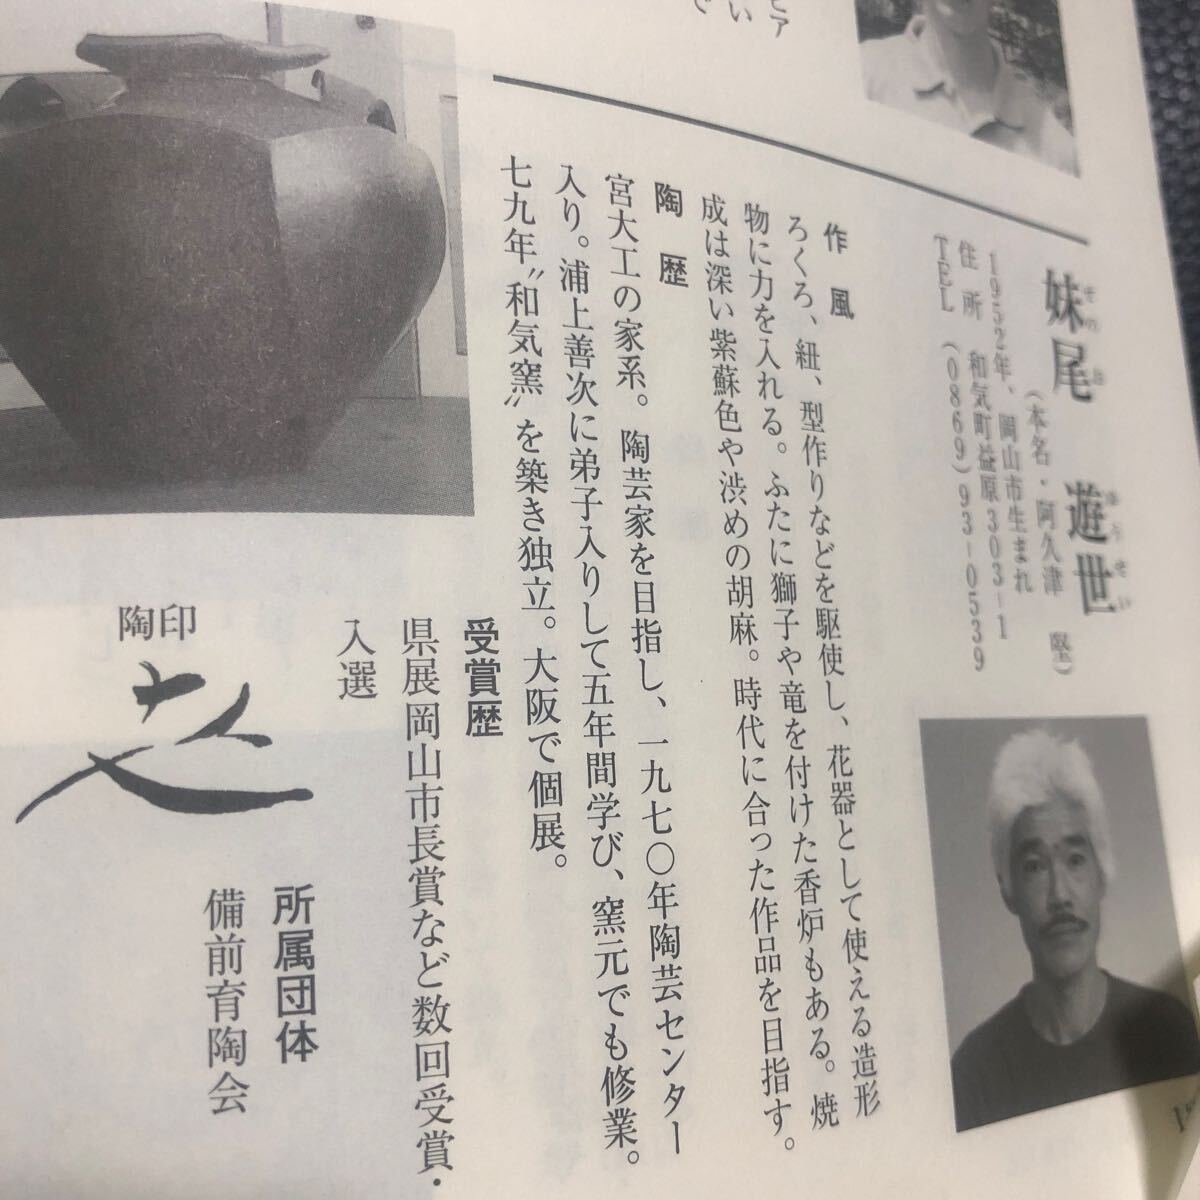 妹尾 遊世
(本名・阿久津 堅)
1952年、岡山市生まれ
住所 和気町益原303-1
TEL (0869)93-0539
作風
ろくろ、紐、型作りなどを駆使し、花器として使える造形
物に力を入れる。ふたに獅子や竜を付けた香炉もある。焼
成は深い紫蘇色や渋めの胡麻。時代に合った作品を目指す。
陶歴
宮大工の家系。陶芸家を目指し、一九七〇年陶芸センター
入り。浦上善次に弟子入りして五年間学び、窯元でも修業。
七九年〝和気窯〟を築き独立。大阪で個展。
受賞歴
県展岡山市長賞など数回受賞・
入選
所属団体
備前育陶会
陶印